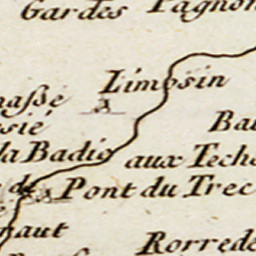 Gardes Pagnon
Limosin
nasse
sié
Bau
la Badie aux Teche
de Pont du Trec
naut
Rorrede